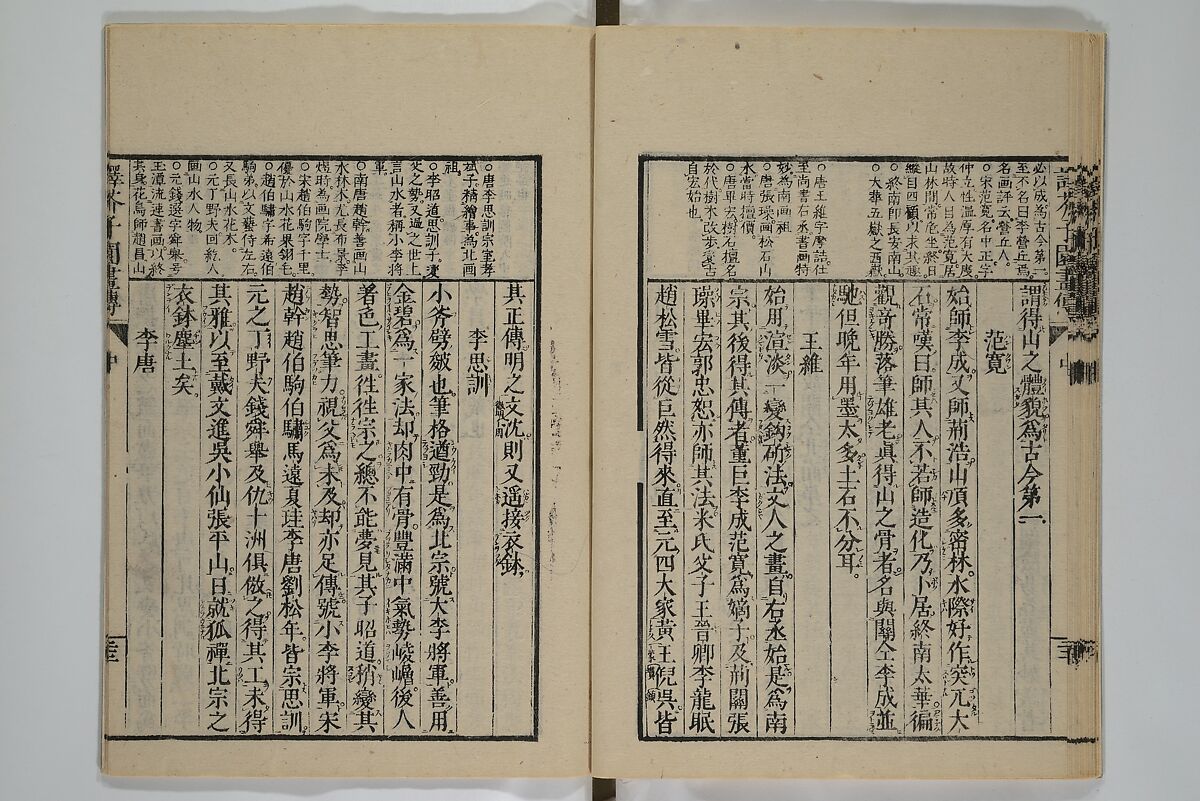 必以成爲古今第一
至不名曰李營丘焉
名画評云營丘人
○宋范寛名中正字
仲立性溫厚有大度
故時人目為范寛居
山林間常危坐終日
縱目四顧以求其趣
○終南即長安南山
○大華五嶽之西嶽
○唐王維字摩詰仕
至尚書右丞書画特
妙為南画祖
○唐張璪画松石山
水當時擅價
○唐畢宏樹石擅名
於代樹木改歩変古
自宏始也
謂得山之體貌爲古今第一
范寛
始師李成又師荊浩山頂多密林水際好作突兀大
石常嘆曰師其人不若師造化乃卜居終南太華徧
觀竒勝落筆雄老眞得山之骨者名與關仝李成並
馳但晩年用墨太多土石不分耳。
王維
始用渲淡一變鈎斫法文人之畫自右丞始是爲南
宗其後得其傳者董巨李成范寛爲嫡子及荊關張
璪畢宏郭忠恕亦師其法米氏父子王晉卿李龍眠
趙松雪皆從巨然得來直至元四大家黄王倪吳皆
○唐李思訓宗室孝
斌子精繪事為北画
祖
○李昭道思訓子変
父之勢又過之世上
言山水者稱小李將
軍
○南唐趙幹善画山
水林木尤長布景李
煜時為画院學士
○宋趙伯駒字千里
優於山水花果翎毛
○趙伯驌字希遠伯
駒弟以文藝侍左右
又長山水花木
○元丁野夫回紇人
画山水人物
○元錢選字舜舉号
玉潭流連書画以終
其身花鳥師趙昌山
其正傳明之文沈則又遥接衣鉢
李思訓
小斧劈皴也筆格遒勁是爲北宗號大李將軍善用
金碧爲一家法却肉中有骨豐滿中氣勢崚嶒後人
著色工畫徃徃宗之總不能夢見其子昭道稍變其
勢智思筆力視父爲未及却亦足傳號小李將軍宋
趙幹趙伯駒伯驌馬遠夏珪李唐劉松年皆宗思訓
元之丁野夫錢舜舉及仇十洲俱倣之得其工未得
其雅以至戴文進吳小仙張平山日就狐禪北宗之
衣鉢塵土矣
李唐
譯芥子園畫傳
中